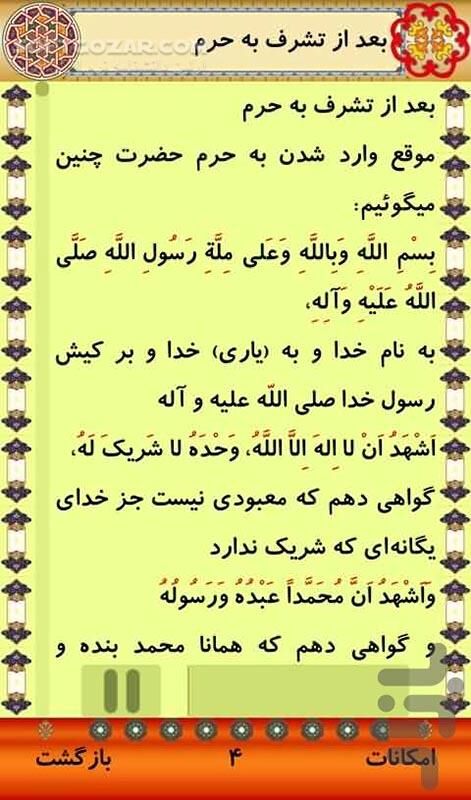 بعد از تشرف به حرم
بعد از تشرف به حرم
موقع وارد شدن به حرم حضرت چنین
میگوئیم:
بِسْمِ اللَّهِ وَبِاللَّهِ وَعَلی مِلَّةِ رَسُولِ اللَّهِ صَلَّی
اللَّهُ عَلَیْهِ وَآلِهِ،
به نام خدا و به (یاری) خدا و بر کیش
رسول خدا صلی اللّه علیه و آله
اَشْهَدُ اَنْ لا اِلهَ اِلاَّ اللَّهُ، وَحْدَهُ لا شَریکَ لَهُ،
گواهی دهم که معبودی نیست جز خدای
یگانه‌ای که شریک ندارد
وَاَشْهَدُ اَنَّ مُحَمَّداً عَبْدُهُ وَرَسُولُهُ
و گواهی دهم که همانا محمد بنده و
امکانات ۴ بازگشت